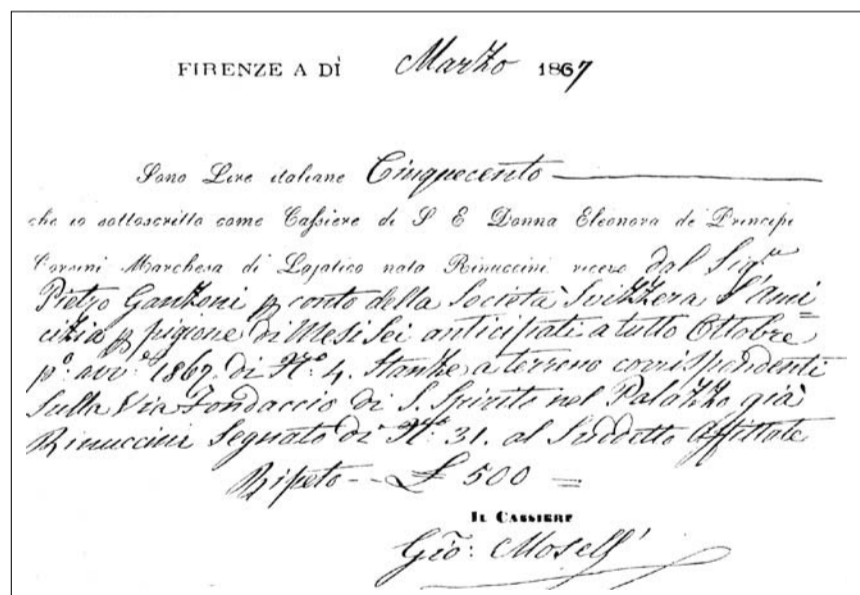 FIRENZE A DÌ Marzo 1867
Sono Lire italiane Cinquecento
che io sottoscritto come Cassiere di S E Donna Eleonora de Principi
Corsini Marchesa di Lajatico nata Rinuccini ricevo dal Sig.re
Pietro Ganzoni p conto della Società Svizzera L'Ami
cizia p pigione di Mesi Sei anticipati a tutto Ottobre
p.o avv.o 1867. di N.o 4. Stanze a terreno corrispondenti
Sulla Via Fondaccio di S. Spirito nel Palazzo già
Rinuccini Segnato di N.o 31. al Suddetto Affittate
Ripeto -- £ 500 =
IL CASSIERE
Gio: